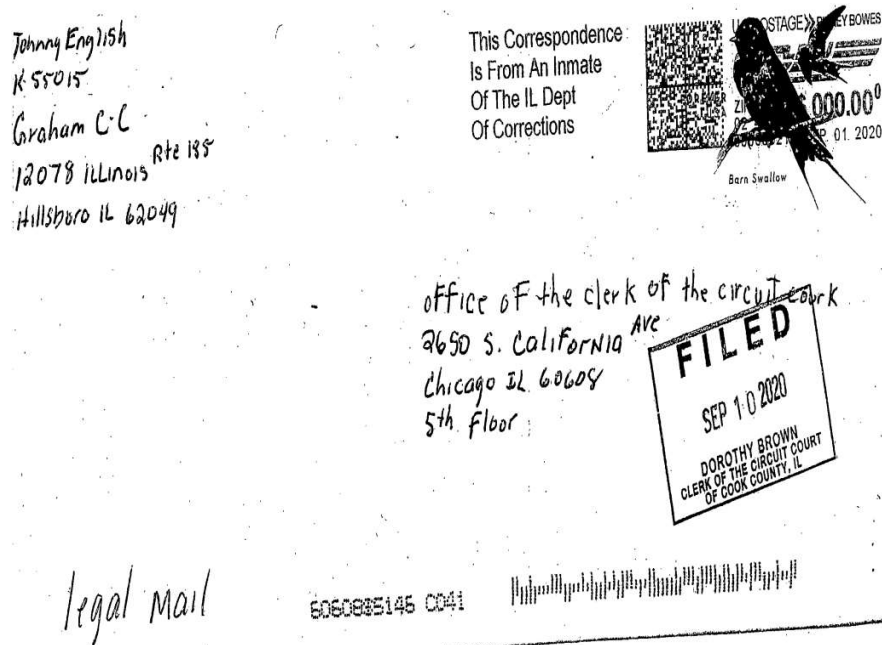 Johnny English
K 55015
Graham C.C
12078 ILLinois Rte 185
Hillsboro IL 62049
This Correspondence
Is From An Inmate
Of The IL Dept
Of Corrections
U.S. POSTAGE
EY BOWES
FOREVER
ZIP
000.00⁰
02
01. 2020
Barn Swallow
office of the clerk of the circuit courk
2650 S. California Ave
Chicago IL 60608
5th Floor
FILED
SEP 10 2020
DOROTHY BROWN
CLERK OF THE CIRCUIT COURT
OF COOK COUNTY, IL
legal Mail
C041